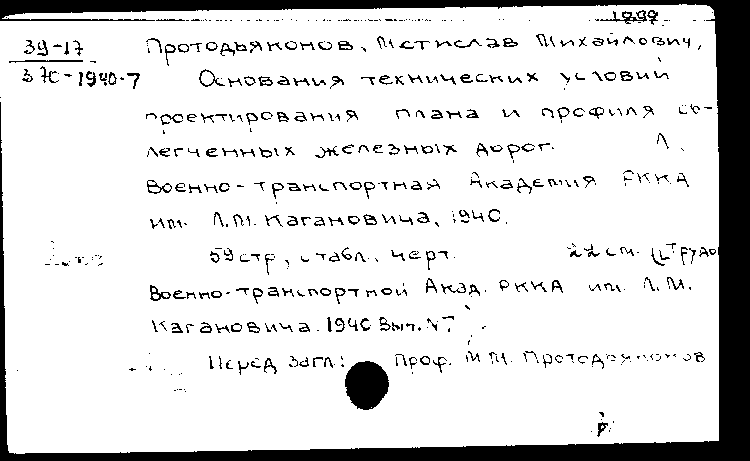 1899
39-17 Протодьяконов, Мстислав Михайлович,
37с-1940-7 Основания технических условий
проектирования плана и профиля об-
легченных железных дорог. Л.
Военно-транспортная Академия РККА
им. Л.М. Кагановича, 1940.
59 стр, с табл. черт. 22 см. (Трудов
Военно-транспортной Акад. РККА им. Л.М.
Кагановича. 1940 Вып. №7
Перед загл: Проф. М М. Протодьяконов